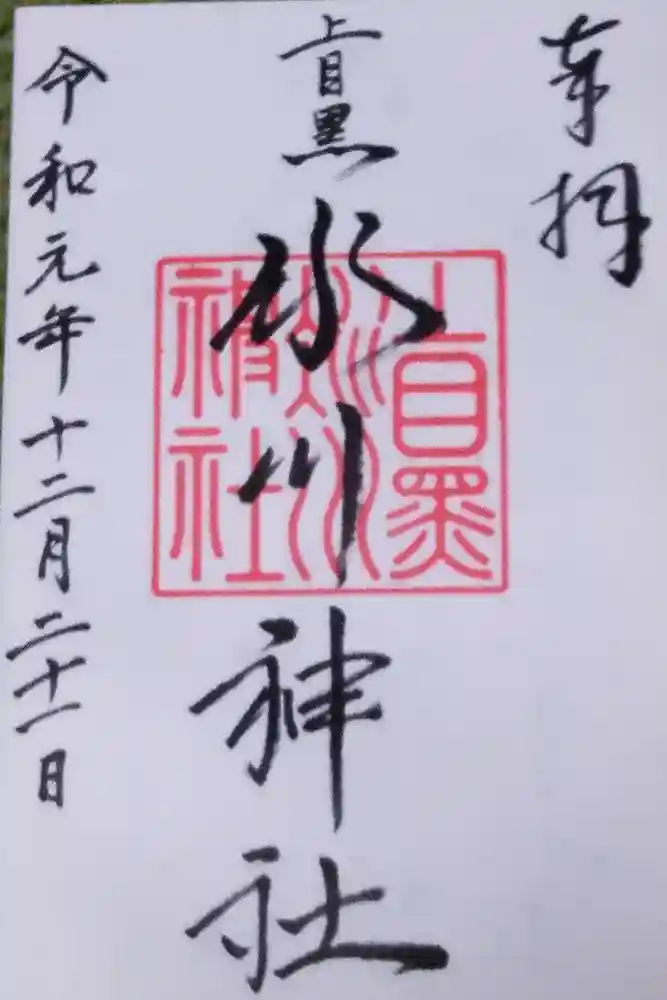 奉拝
上目黒
氷川神社
上目黒
氷川
神社
令和元年十二月二十一日